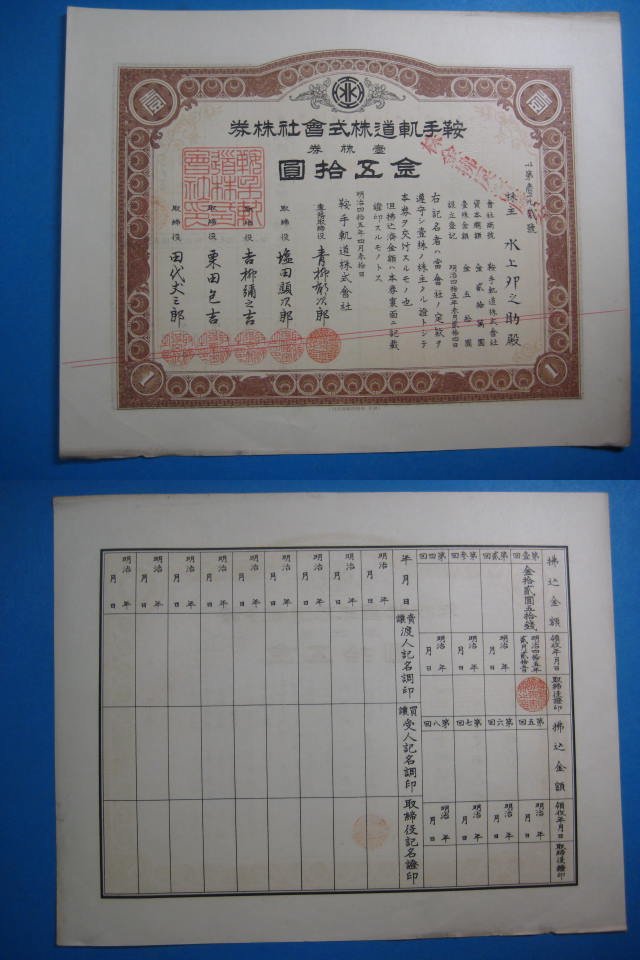 鞍手軌道株式會社株券
壹株券
金五拾圓
株主 水上卯之助殿
會社商號 鞍手軌道株式會社
資本總額 金貳拾萬圓
壹株金額 金五拾圓
設立登記 明治四拾五年參月貳拾四日
右記名者ハ當會社ノ定款ヲ
遵守シ壹株ノ株主タル證トシテ
本券ヲ交付スルモノ也
但拂込濟金額ハ本券裏面ニ記載
證印スルモノトス
明治四拾五年四月參拾日
鞍手軌道株式會社
專務取締役 青柳郁次郎
取締役 塩田顯次郎
取締役 吉柳彌之吉
取締役 栗田包吉
取締役 田代丈三郎
1
1
拂込金額
領收年月日
取締役證印
第壹回
金拾貳圓五拾錢
明治四拾五年
第貳回
明治 年 月 日
第參回
明治 年 月 日
第四回
明治 年 月 日
拂込金額
領收年月日
取締役證印
第五回
明治 年 月 日
第六回
明治 年 月 日
第七回
明治 年 月 日
第八回
明治 年 月 日
年月日
賣讓渡人記名調印
買讓受人記名調印
取締役記名證印
明治 年 月 日
明治 年 月 日
明治 年 月 日
明治 年 月 日
明治 年 月 日
明治 年 月 日
明治 年 月 日
明治 年 月 日
明治 年 月 日